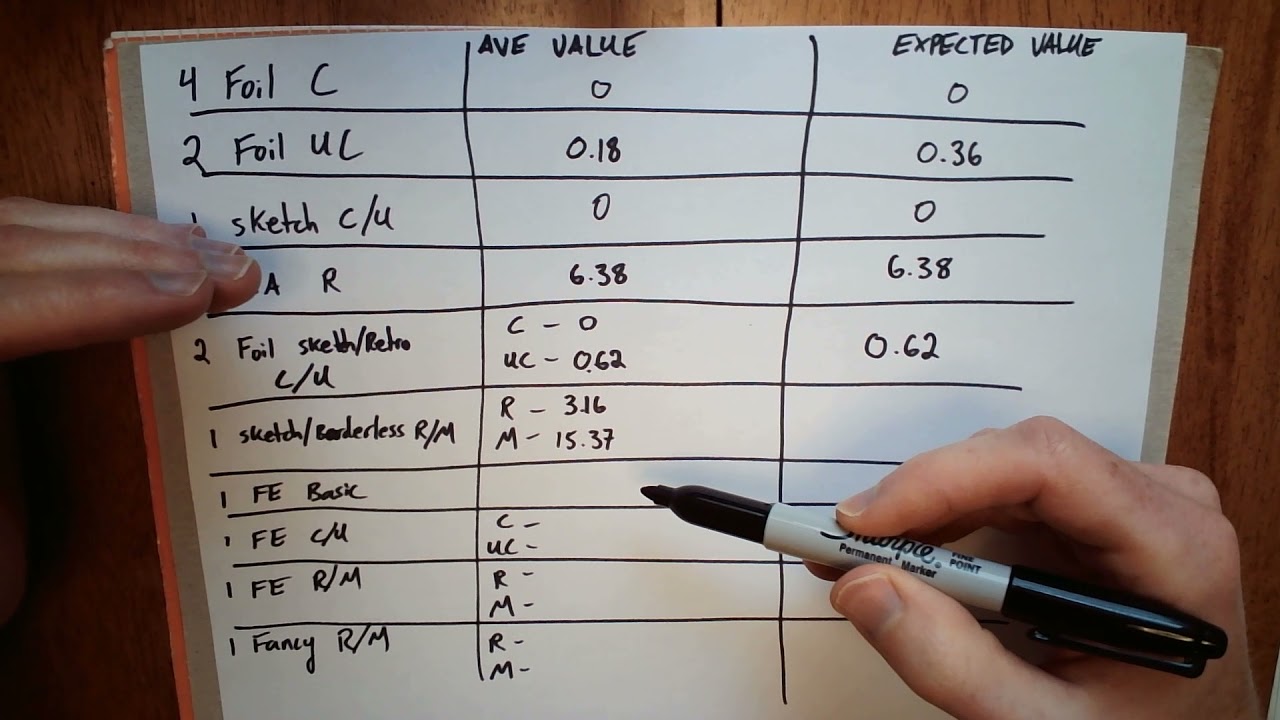 AVE VALUE EXPECTED VALUE
4 Foil C 0 0
2 Foil UC 0.18 0.36
1 sketch C/U 0 0
A R 6.38 6.38
2 Foil sketch/Retro C/U C - 0 UC - 0.62 0.62
1 sketch/Borderless R/M R - 3.16 M - 15.37
1 FE Basic
1 FE C/U C - UC -
1 FE R/M R - M -
1 Fancy R/M R - M -
Sharpie
FINE POINT
Permanent Marker